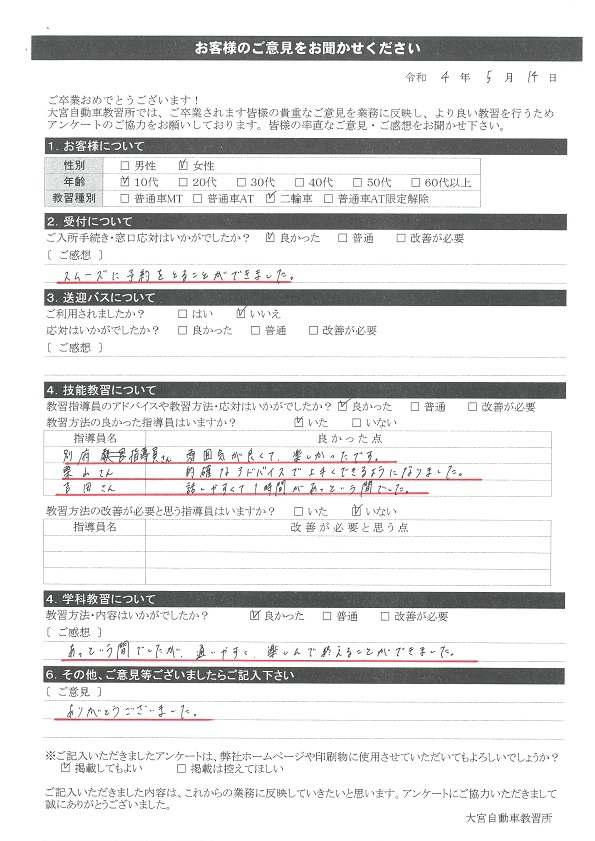 お客様のご意見をお聞かせください
令和 4 年 5 月 14 日
ご卒業おめでとうございます！
大宮自動車教習所では、ご卒業されます皆様の貴重なご意見を業務に反映し、より良い教習を行うため
アンケートのご協力をお願いしております。皆様の率直なご意見・ご感想をお聞かせ下さい。
1. お客様について
性別 □ 男性 ☑ 女性
年齢 ☑ 10代 □ 20代 □ 30代 □ 40代 □ 50代 □ 60代以上
教習種別 □ 普通車MT □ 普通車AT ☑ 二輪車 □ 普通車AT限定解除
2. 受付について
ご入所手続き・窓口応対はいかがでしたか？ ☑ 良かった □ 普通 □ 改善が必要
〔 ご感想 〕
スムーズに予約をとることができました。
3. 送迎バスについて
ご利用されましたか？ □ はい ☑ いいえ
応対はいかがでしたか？ □ 良かった □ 普通 □ 改善が必要
〔 ご感想 〕
4. 技能教習について
教習指導員のアドバイスや教習方法・応対はいかがでしたか？ ☑ 良かった □ 普通 □ 改善が必要
教習方法の良かった指導員はいますか？ ☑ いた □ いない
指導員名 良かった点
別府 指導員さん 雰囲気が良くて、楽しかったです。
栗山さん 的確なアドバイスで上手くできるようになりました。
吉田さん 話しやすくて1時間があっという間でした。
教習方法の改善が必要と思う指導員はいますか？ □ いた ☑ いない
指導員名 改善が必要と思う点
4. 学科教習について
教習方法・内容はいかがでしたか？ ☑ 良かった □ 普通 □ 改善が必要
〔 ご感想 〕
あっという間でしたが、通いやすく、楽しんで終えることができました。
6. その他、ご意見等ございましたらご記入下さい
〔 ご意見 〕
ありがとうございました。
※ご記入いただきましたアンケートは、弊社ホームページや印刷物に使用させていただいてもよろしいでしょうか？
☑ 掲載してもよい □ 掲載は控えてほしい
ご記入いただきました内容は、これからの業務に反映していきたいと思います。アンケートにご協力いただきまして
誠にありがとうございました。
大宮自動車教習所